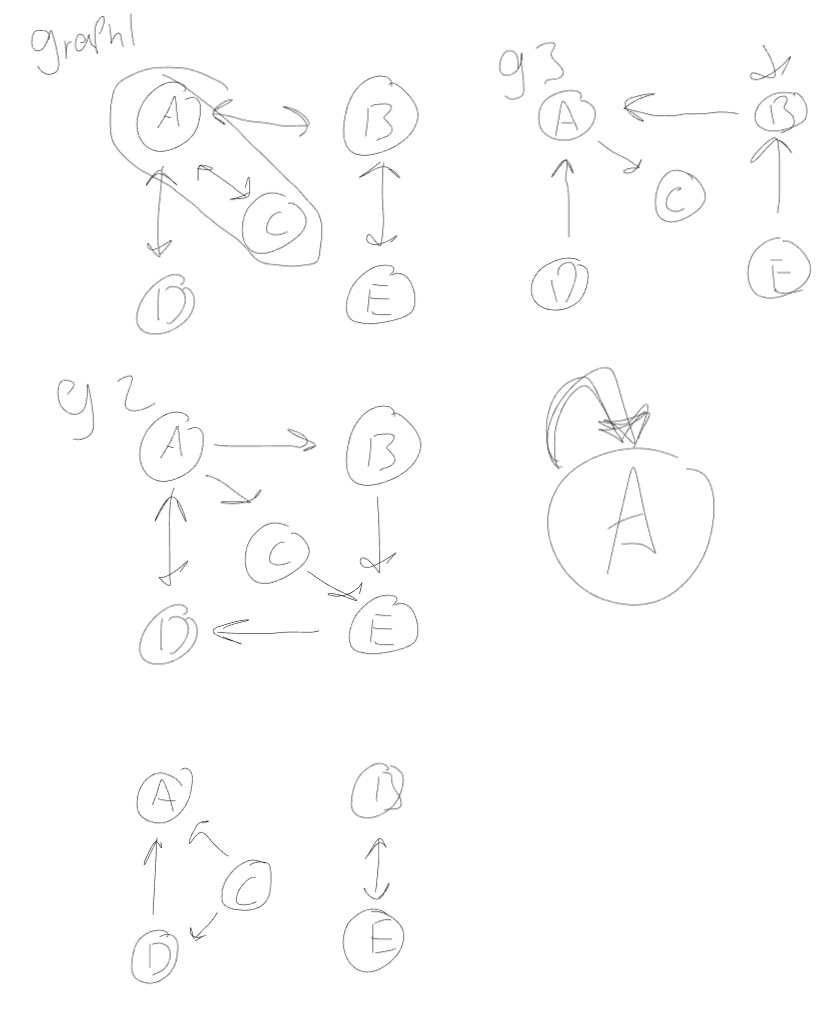 graph1
A
B
C
D
E
g3
A
B
C
D
E
g2
A
B
C
D
E
A
A
B
C
D
E